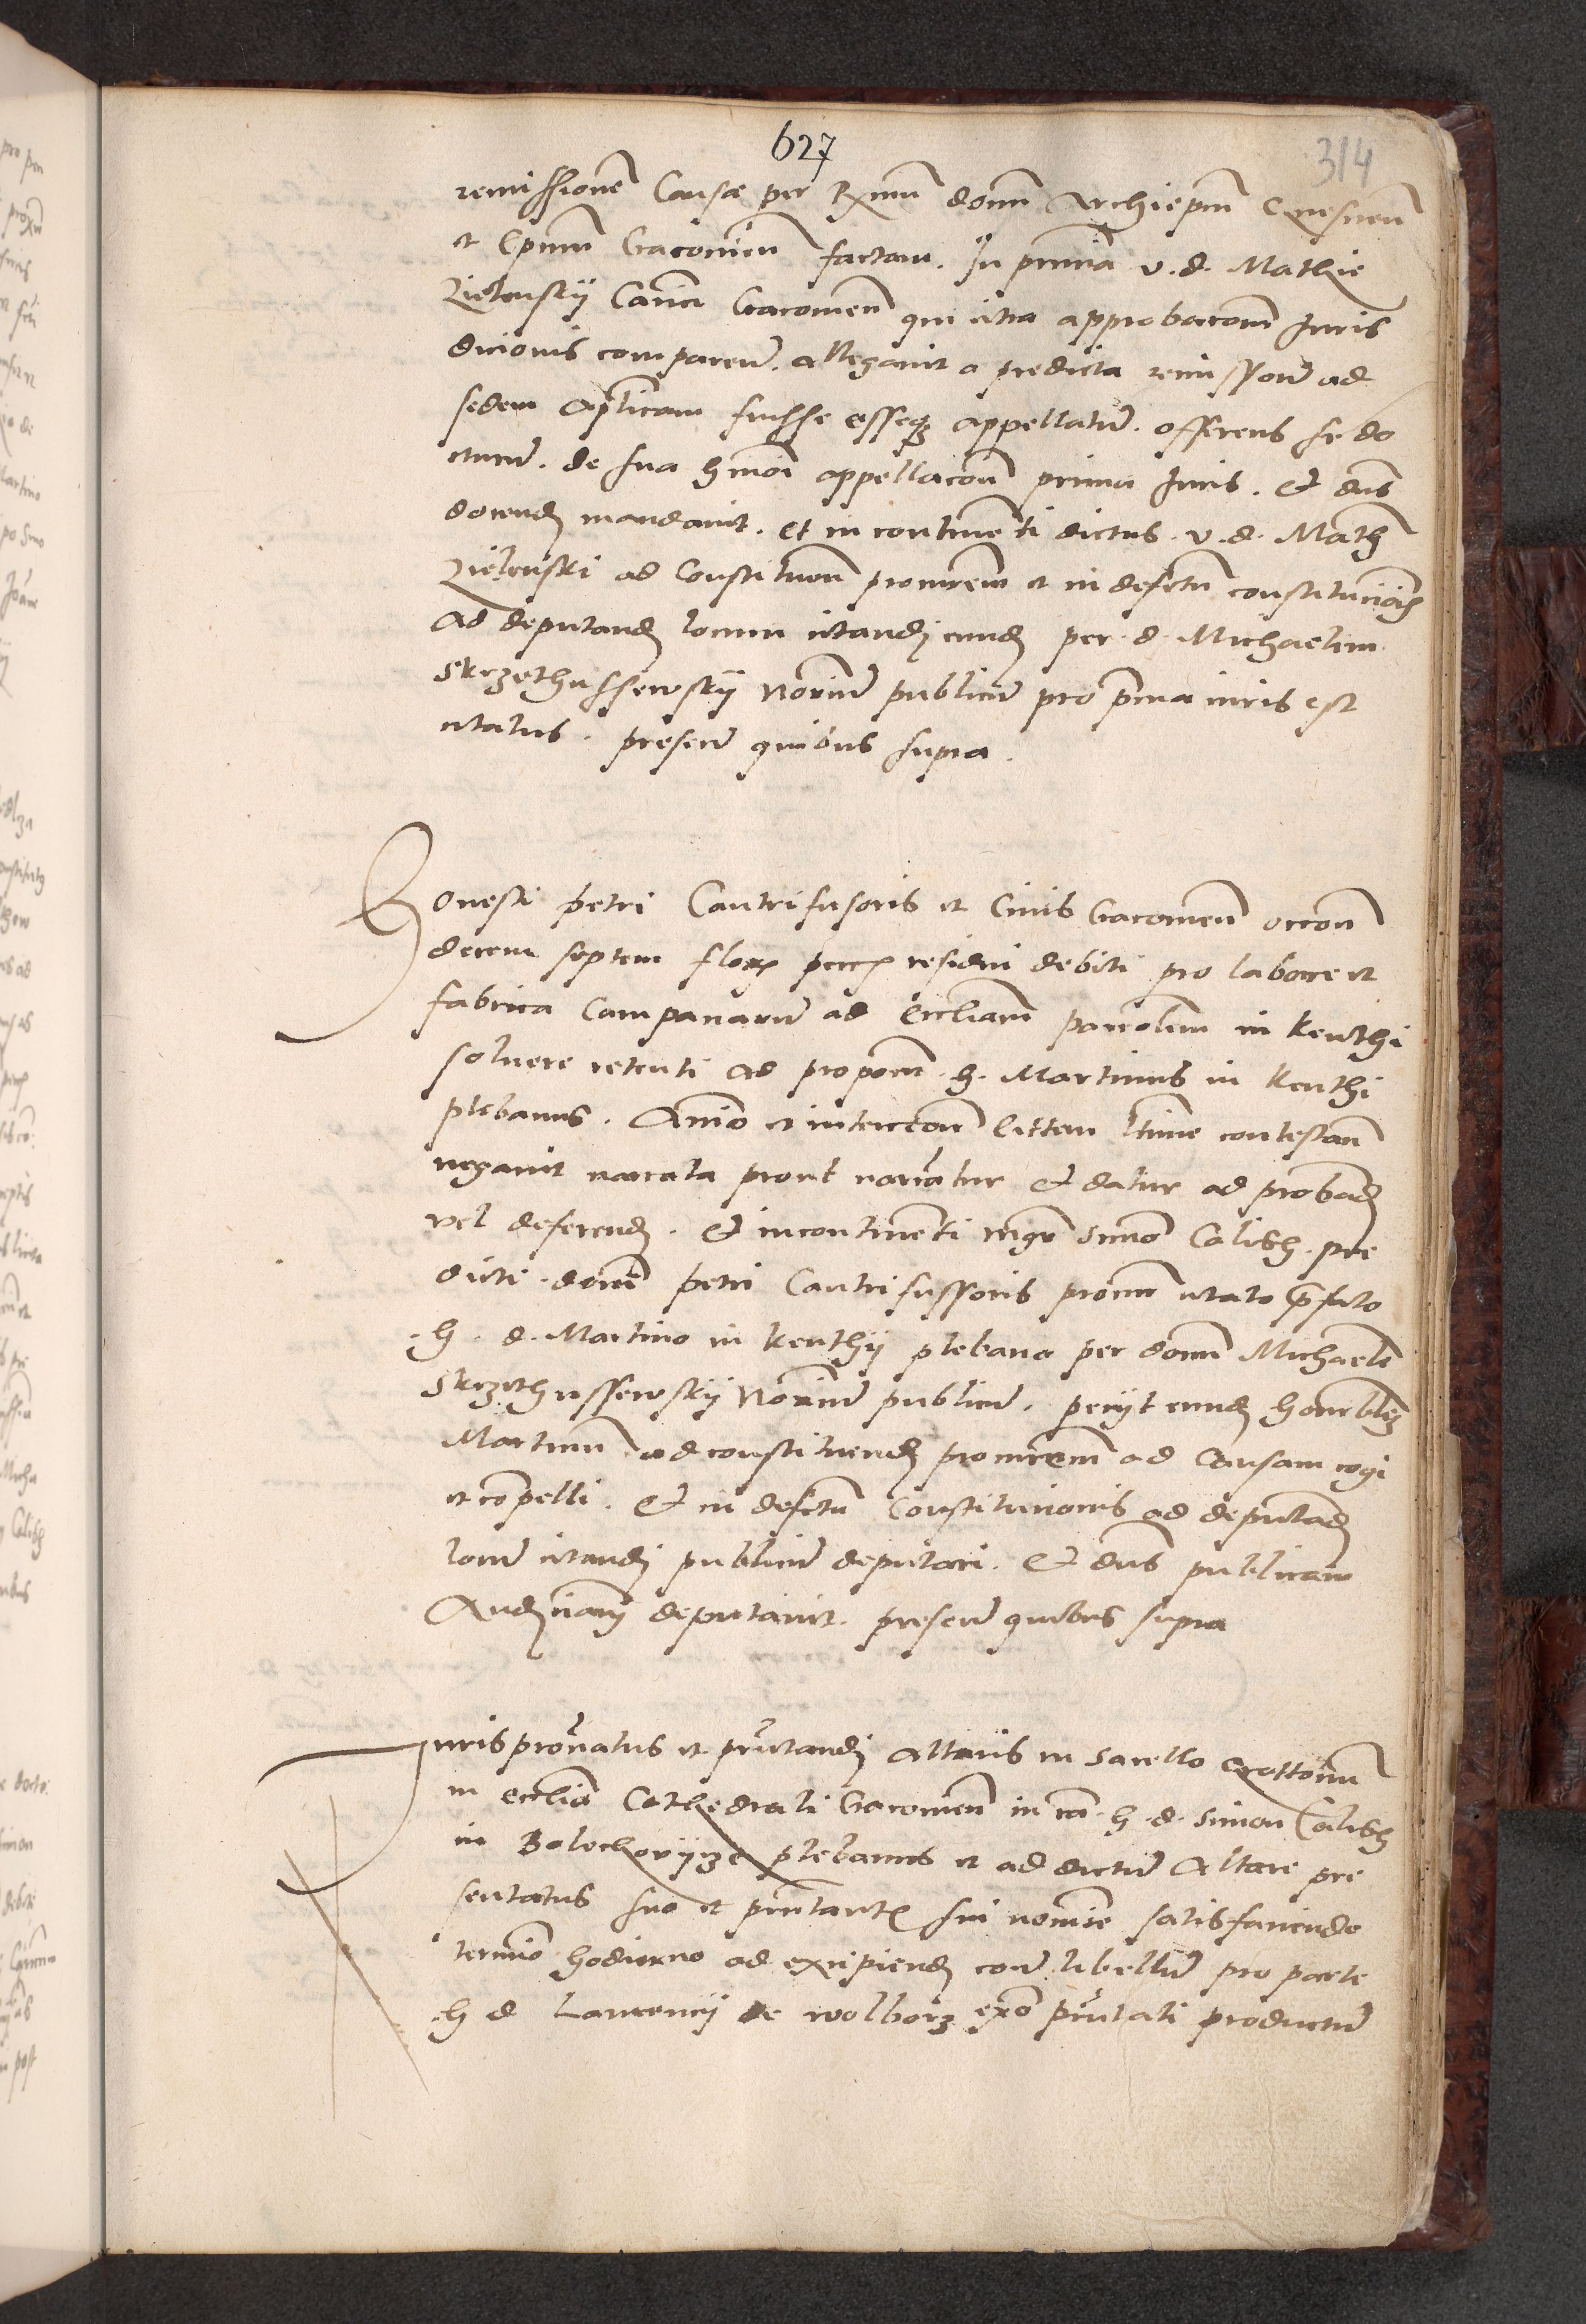 627
314
remissionē Causæ per Rxmū domū Archiepm̄ Gnesneñ
et Epum̄ Cracovieñ factam. In pn̄ciā v. d. Mathie
Zielenskij Canci Cracovieñ qui citra approbacoēm Juris
dicionis compareñ. allegavit a predicta remissioē ad
sedem aplicam fuisse esseqz appellatū. offerens se do
cturū. de sua hmoi appellacoē primā Juris. Et dns
docend mandavit. et in continenti dictus. v. d. Math
Zielenski ad Constituen procurem et in defectū constitucionis
Ad deputand locum citandi eund per. d. Michaelem
Skrzethussewskij Noriū publicū pro prima iuris est
citatus. presen quibus supra.
Honesti Petri Cantrifusoris et Civis Cracovieñ occoē
decem septem flor pecc residui debiti pro labore et
fabrica Campanarū ad Eccliam parrolem in Kenthi
solvere retenti ad propoem h. Martinus in Kenthi
plebanus. Animo et intencoē littem ltime contestañ
negavit narrata prout narrātur Et datur ad proband
vel deferend. Et incontinenti mgr Simō Calisch. pre
dicti. domi Petri Cantrifussoris procur citato prefato
.h. d. Martino in Kenthij plebano per domū Michaelē
Skrzethussewskij Noriū publicū. pecijt eund honorblez
Martinū ad constituend procurem ad Causam cogi
et compelli. Et in defectū Constitucionis ad deputand
locū citandi publicū deputari. Et dns publicam
Audnciam deputavit. presen quibus supra
Juris pronatus et prntandi altaris in sacello Grottoviū
in Ecclia Cathedrali Cracovieñ in ca. h. d. Simon Calisch
in Bolechovijcze plebanus et ad dictū Altare pre
sentatus suo et prntantis sui nomine satisfaciendo
termio hodierno ad excipiend con libellū pro parte
h d Laurencij de Wolborz exo prntati productū